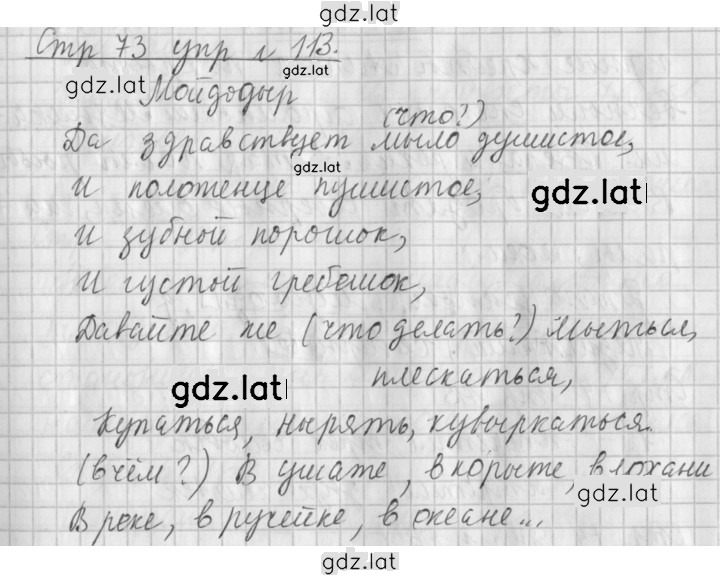 gdz.lat
Стр 73 упр № 113.
gdz.lat
gdz.lat
Мойдодыр
(что?)
Да здравствует мыло душистое,
gdz.lat
И полотенце пушистое,
gdz.lat
И зубной порошок,
И густой гребешок,
Давайте же (что делать?) мыться,
плескаться,
gdz.lat
Купаться, нырять, кувыркаться.
(в чём?) В ушате, в корыте, в лохани
gdz.lat
В реке, в ручейке, в океане...
gdz.lat